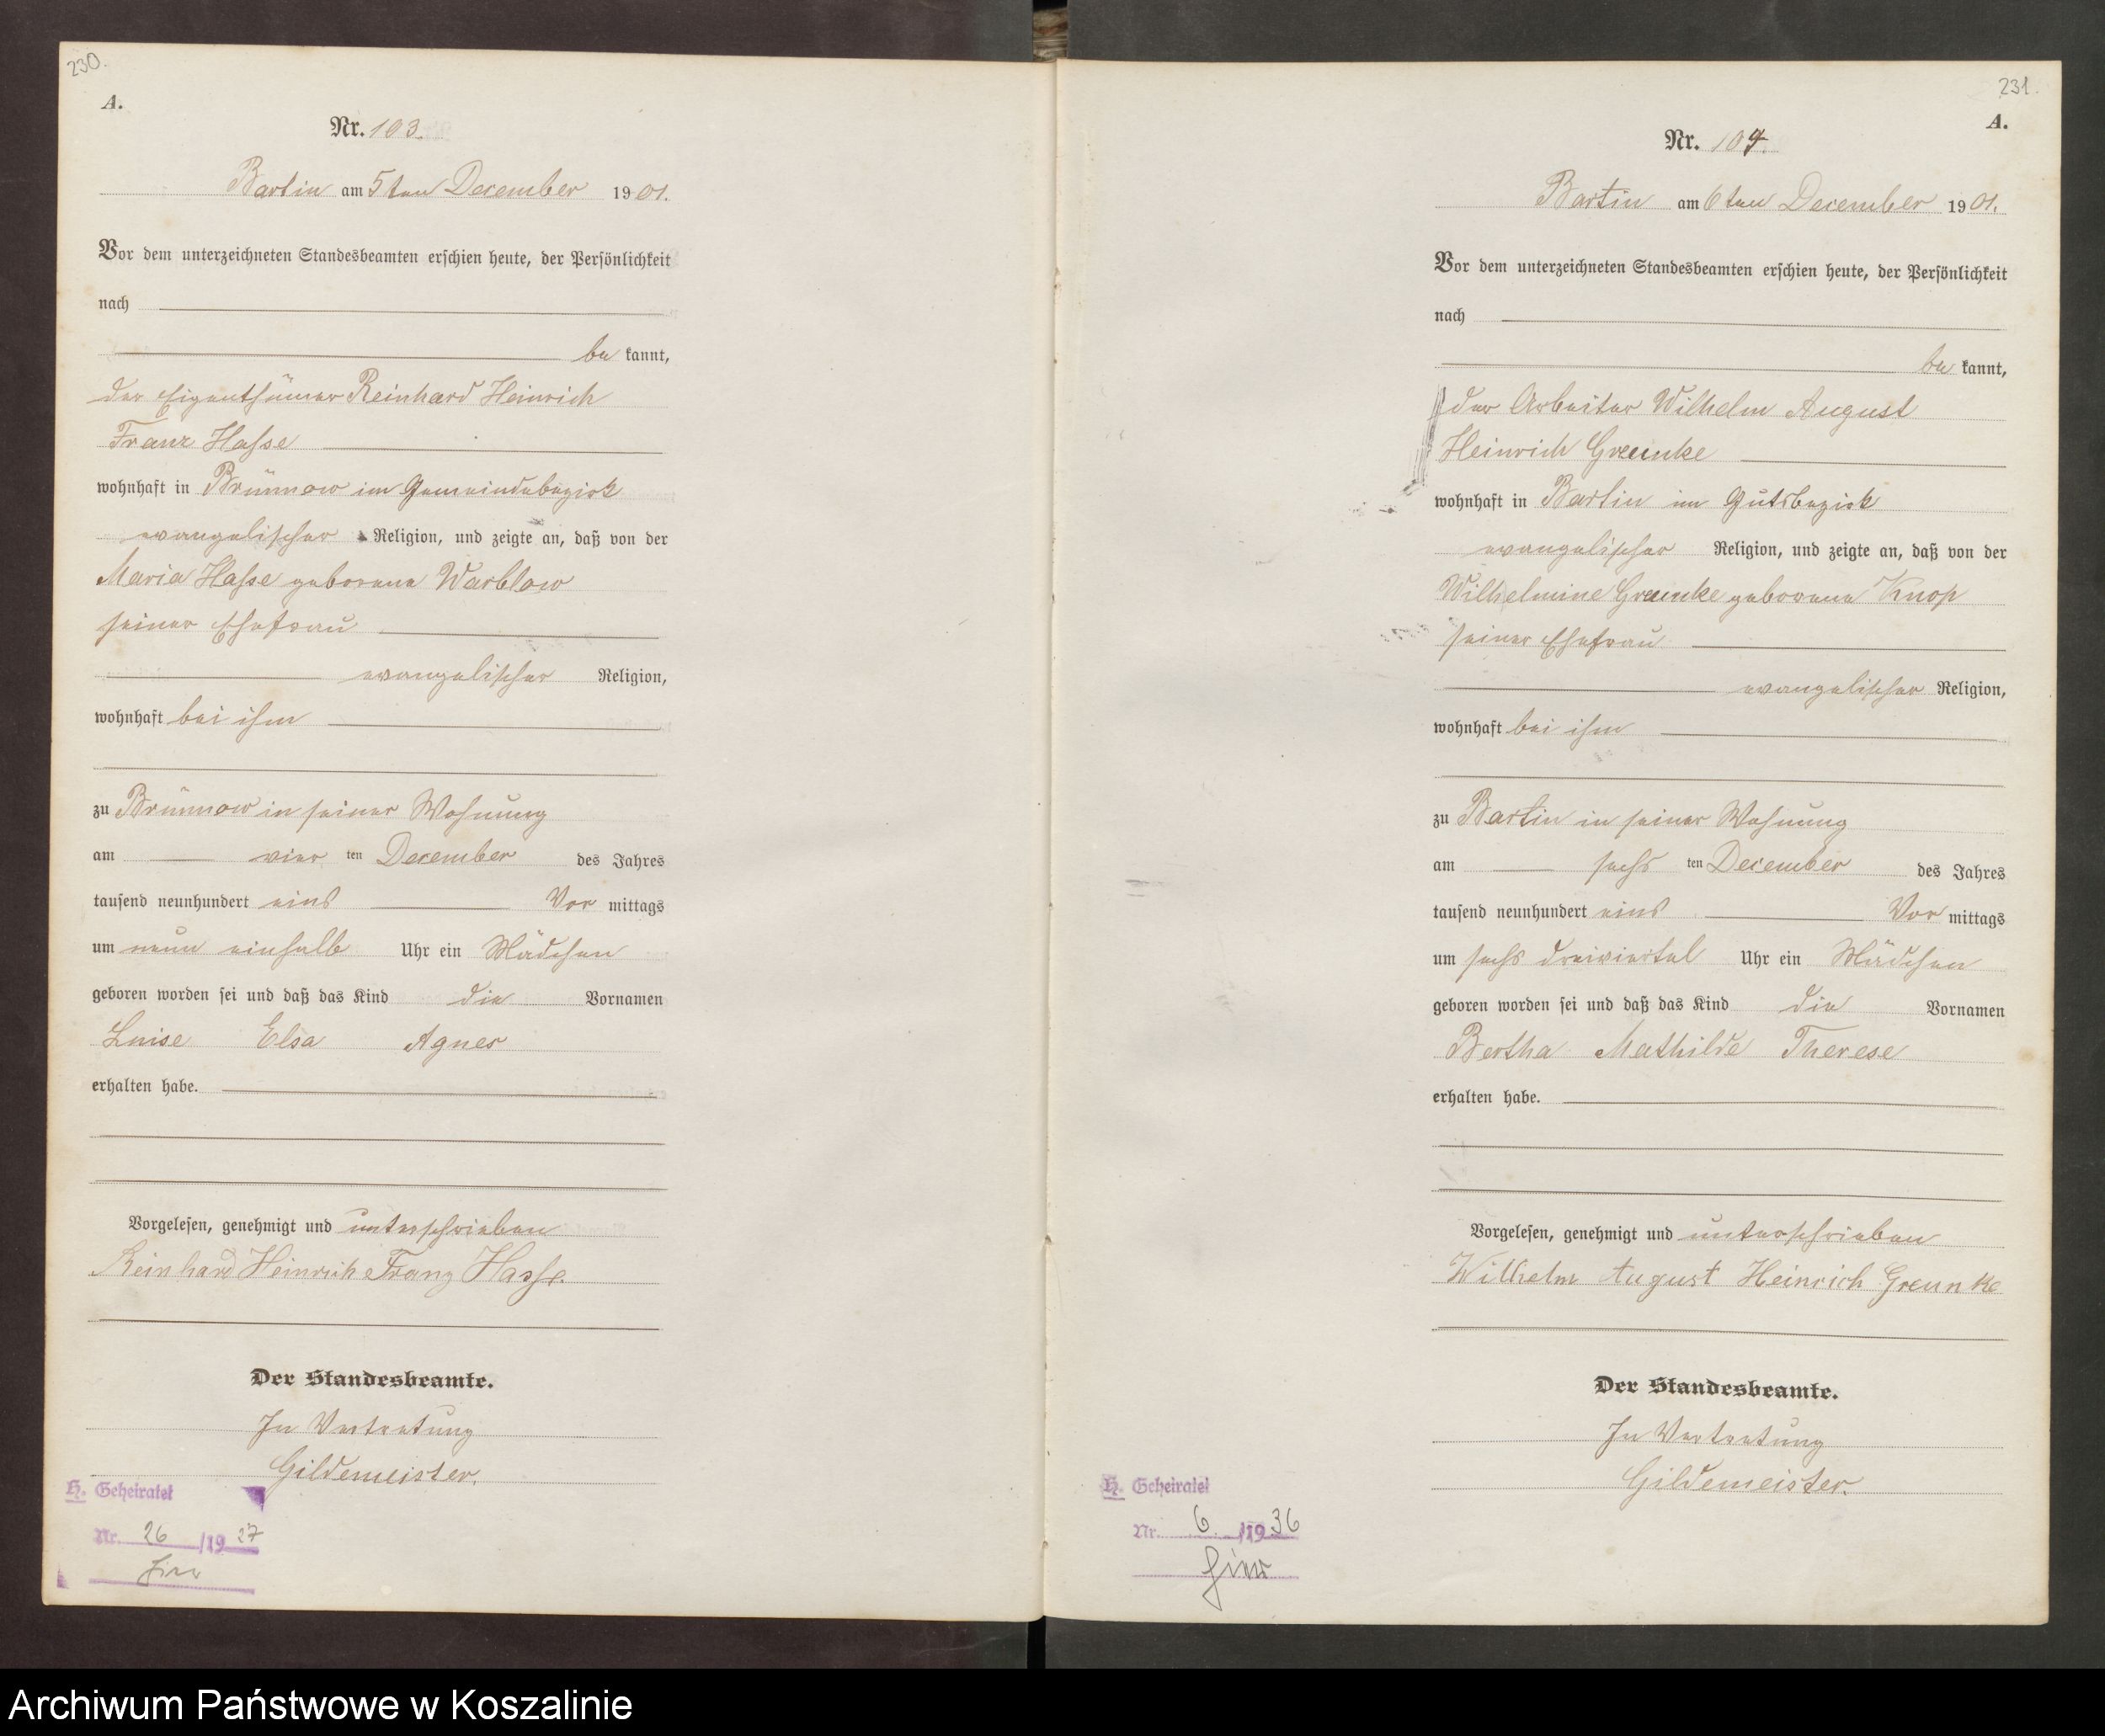 230.
A.
Nr. 103.
Bartin am 5ten December 1901.
Vor dem unterzeichneten Standesbeamten erschien heute, der Persönlichkeit
nach
be kannt,
der Eigenthümer Reinhard Heinrich
Franz Hasse
wohnhaft in Brünnow im Gemeindebezirk
evangelischer Religion, und zeigte an, daß von der
Maria Hasse geborene Warblow
seiner Ehefrau
evangelischer Religion,
wohnhaft bei ihm
zu Brünnow in seiner Wohnung
am vier ten December des Jahres
tausend neunhundert eins Vor mittags
um neun einhalb Uhr ein Mädchen
geboren worden sei und daß das Kind die Vornamen
Luise Elsa Agnes
erhalten habe.
Vorgelesen, genehmigt und unterschrieben
Reinhard Heinrich Franz Hasse.
Der Standesbeamte.
In Vertretung
Gildemeister.
H. Geheiratet
Nr. 26 /1927
231.
A.
Nr. 104.
Bartin am 6ten December 1901.
Vor dem unterzeichneten Standesbeamten erschien heute, der Persönlichkeit
nach
be kannt,
der Arbeiter Wilhelm August
Heinrich Greunke
wohnhaft in Bartin im Gutsbezirk
evangelischer Religion, und zeigte an, daß von der
Wilhelmine Greunke geborene Knop
seiner Ehefrau
evangelischer Religion,
wohnhaft bei ihm
zu Bartin in seiner Wohnung
am sechs ten December des Jahres
tausend neunhundert eins Vor mittags
um sechs dreiviertel Uhr ein Mädchen
geboren worden sei und daß das Kind die Vornamen
Bertha Mathilde Therese
erhalten habe.
Vorgelesen, genehmigt und unterschrieben
Wilhelm August Heinrich Greunke
Der Standesbeamte.
In Vertretung
Gildemeister.
H. Geheiratet
Nr. 6. /1936
Archiwum Państwowe w Koszalinie